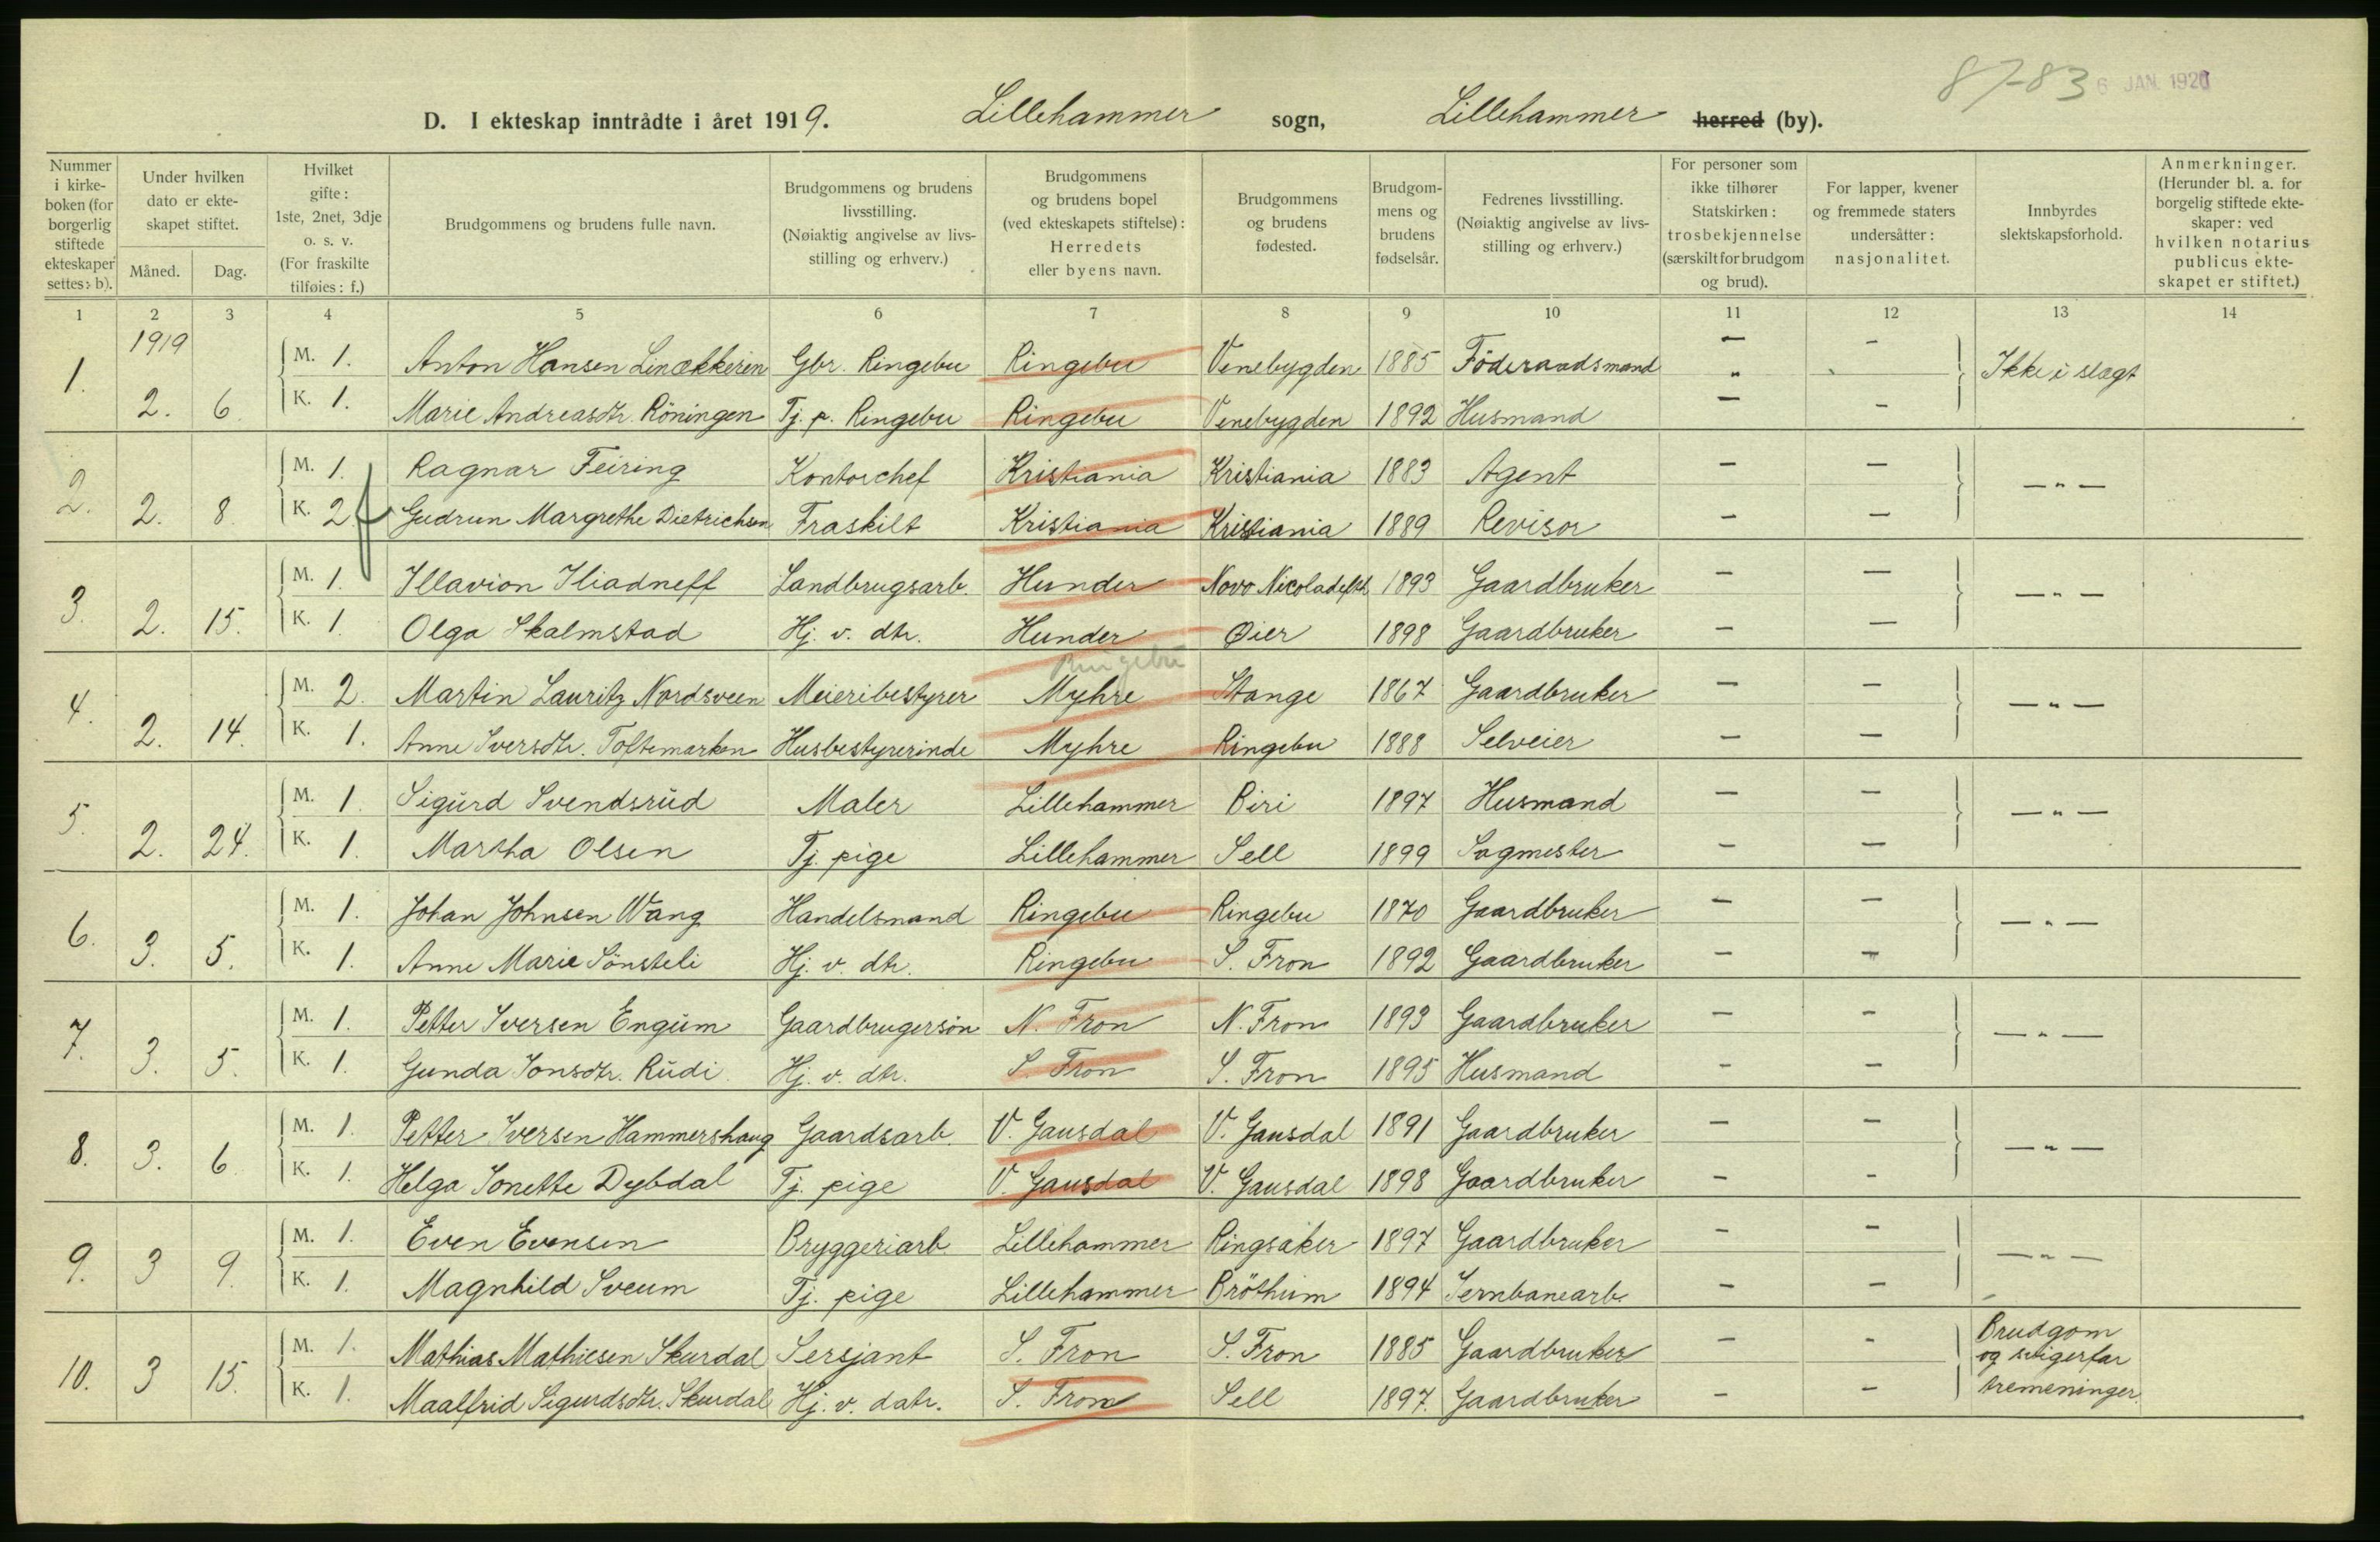 87-83 6 JAN. 1920
D. I ekteskap inntrådte i året 1919. Lillehammer sogn, Lillehammer herred (by).
Nummer i kirkeboken (for borgerlig stiftede ekteskaper settes: b).
Under hvilken dato er ekteskapet stiftet.
Måned. Dag.
Hvilket gifte: 1ste, 2net, 3dje o. s. v. (For fraskilte tilføies: f.)
Brudgommens og brudens fulle navn.
Brudgommens og brudens livsstilling. (Nøiaktig angivelse av livsstilling og erhverv.)
Brudgommens og brudens bopel (ved ekteskapets stiftelse): Herredets eller byens navn.
Brudgommens og brudens fødested.
Brudgommens og brudens fødselsår.
Fedrenes livsstilling. (Nøiaktig angivelse av livsstilling og erhverv.)
For personer som ikke tilhører Statskirken: trosbekjennelse (særskilt for brudgom og brud).
For lapper, kvener og fremmede staters undersåtter: nasjonalitet.
Innbyrdes slektskapsforhold.
Anmerkninger. (Herunder bl. a. for borgelig stiftede ekteskaper: ved hvilken notarius publicus ekteskapet er stiftet.)
1 2 3 4 5 6 7 8 9 10 11 12 13 14
1919
1. M. 1. Anton Hansen Linækkeren Gbr. Ringebu Ringebu Venebygden 1885 Föderaadsmand — - Ikke i slægt
2. 6. K. 1. Marie Andreasdtr. Röningen Tj. p. Ringebu Ringebu Venebygden 1892 Husmand — -
2. M. 1. Ragnar Feiring Kontorchef Kristiania Kristiania 1883 Agent — — —„—
2. 8. K. 2 f Gudrun Margrethe Dietrichsen Fraskilt Kristiania Kristiania 1889 Revisor — —
3. M. 1. Illavion Iliadneff Landbrugsarb. Hunder Novo 1893 Gaardbruker — — —„—
2. 15. K. 1. Olga Skalmstad Hj. v. dtr. Hunder Øier 1898 Gaardbruker — —
Ringebu
4. M. 2. Martin Lauritz Nordsveen Meieribestyrer Myhre Stange 1867 Gaardbruker — — —„—
2. 14. K. 1. Anne Iversdtr. Toftemarken Husbestyrerinde Myhre Ringebu 1888 Selveier — —
5. M. 1. Sigurd Svendsrud Maler Lillehammer Biri 1897 Husmand — — —„—
2. 24. K. 1. Martha Olsen Tj. pige Lillehammer Sell 1899 Sagmester — —
6. M. 1. Johan Johnsen Wang Handelsmand Ringebu Ringebu 1870 Gaardbruker — — —„—
3. 5. K. 1. Anne Marie Sönsteli Hj. v. dtr. Ringebu S. Fron 1892 Gaardbruker — —
7. M. 1. Petter Iversen Engum Gaardbrugersön N. Fron N. Fron 1893 Gaardbruker — - —„—
3. 5. K. 1. Gunda Jonsdtr. Rudi Hj. v. dtr. S. Fron S. Fron 1895 Husmand - -
8. M. 1. Petter Iversen Hammershaug Gaardsarb. V. Gausdal V. Gausdal 1891 Gaardbruker — — —„—
3. 6. K. 1. Helga Jonette Dybdal Tj. pige V. Gausdal V. Gausdal 1898 Gaardbruker — -
9. M. 1. Even Evensen Bryggeriarb. Lillehammer Ringsaker 1897 Gaardbruker — — —„—
3 9. K. 1. Magnhild Sveum Tj. pige Lillehammer Bröthum 1894 Jernbanearb. — —
10. M. 1. Mathias Mathiesen Skurdal Sersjant S. Fron S. Fron 1885 Gaardbruker — - Brudgom og svigerfar
3 15. K. 1. Maalfrid Sigurdsdtr. Skurdal Hj. v. datr. S. Fron Sell 1897. Gaardbruker — — tremeninger.